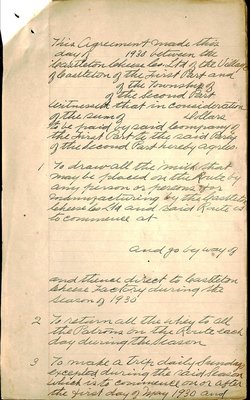 This Agreement made this
day 1930 between the
Castleton Cheese Co. Ltd of the Village
of Castleton of the First Part and
of the Township of
of the Second Part
Witnesseth that in consideration
of the sum of Dollars
to be paid by said Company
of the First Part to the said Party
of the Second Part hereby agrees
1 To draw all the milk that
may be placed on the Route by
any person or persons for
manufacturing by the Castleton
Cheese Co. Ltd and said Route is
to commence at
and go by way of
and thence direct to Castleton
Cheese Factory during the
season of 1930
2 To return all the whey to all
the Patrons on the Route each
day during the season
3 To make a trip daily Sunday
excepted during the said season
which is to commence on or after
the first day of May 1930 and